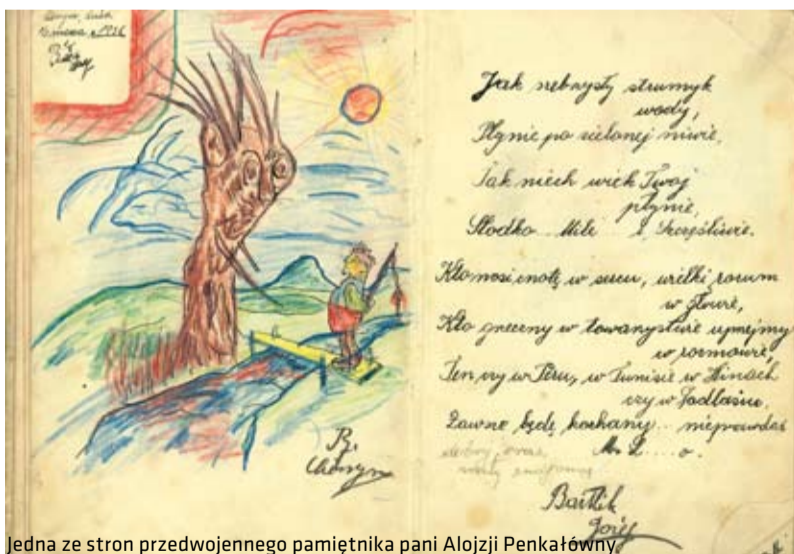 Jak srebrzysty strumyk
wody,
Płynie po zielonej niwie,
Tak niech wiek Twój
płynie,
Słodko Mile i Szczęśliwie.
Kto nosi cnotę w sercu, wielki rozum
w głowie,
Kto grzeczny w towarzystwie uprzejmy
w rozmowie,
Ten czy w Peru, w Tunisie w Hinach
czy w
Zawsze będę kochany... nieprawdaż
Bartlik
Józef
Jedna ze stron przedwojennego pamiętnika pani Alojzji Penkałówny.